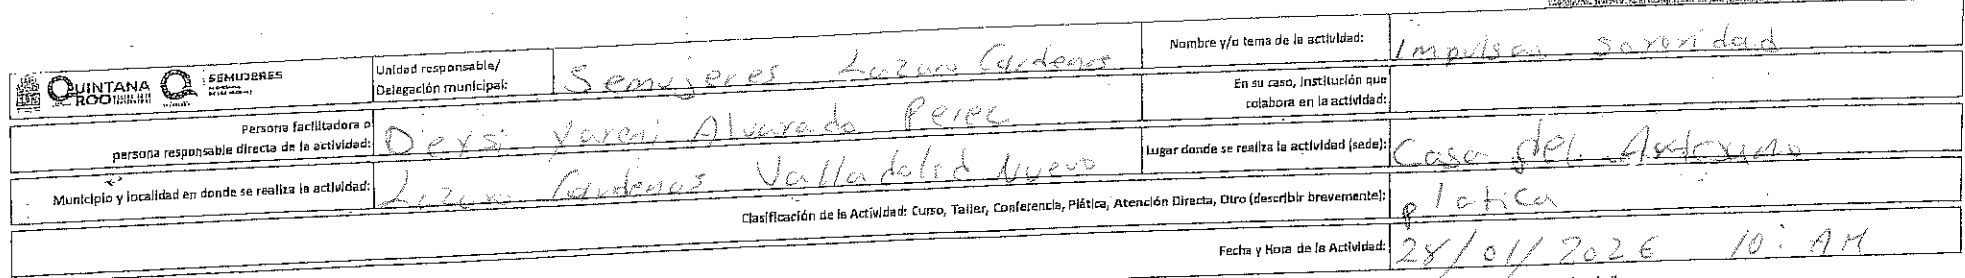 QUINTANA ROO
SEMUJERES
Unidad responsable/
Delegación municipal:
Semujeres Lazaro Cardenas
Nombre y/o tema de la actividad:
Impulsan sororidad
En su caso, institución que
colabora en la actividad:
Persona facilitadora o
persona responsable directa de la actividad:
Deysi Yareni Alvarado Perez
Lugar donde se realiza la actividad (sede):
Casa del
Municipio y localidad en donde se realiza la actividad:
Lazaro Cardenas Valladolid Nuevo
Clasificación de la Actividad: Curso, Taller, Conferencia, Plática, Atención Directa, Otro (describir brevemente):
platica
Fecha y Hora de la Actividad:
28/01/2026 10: AM